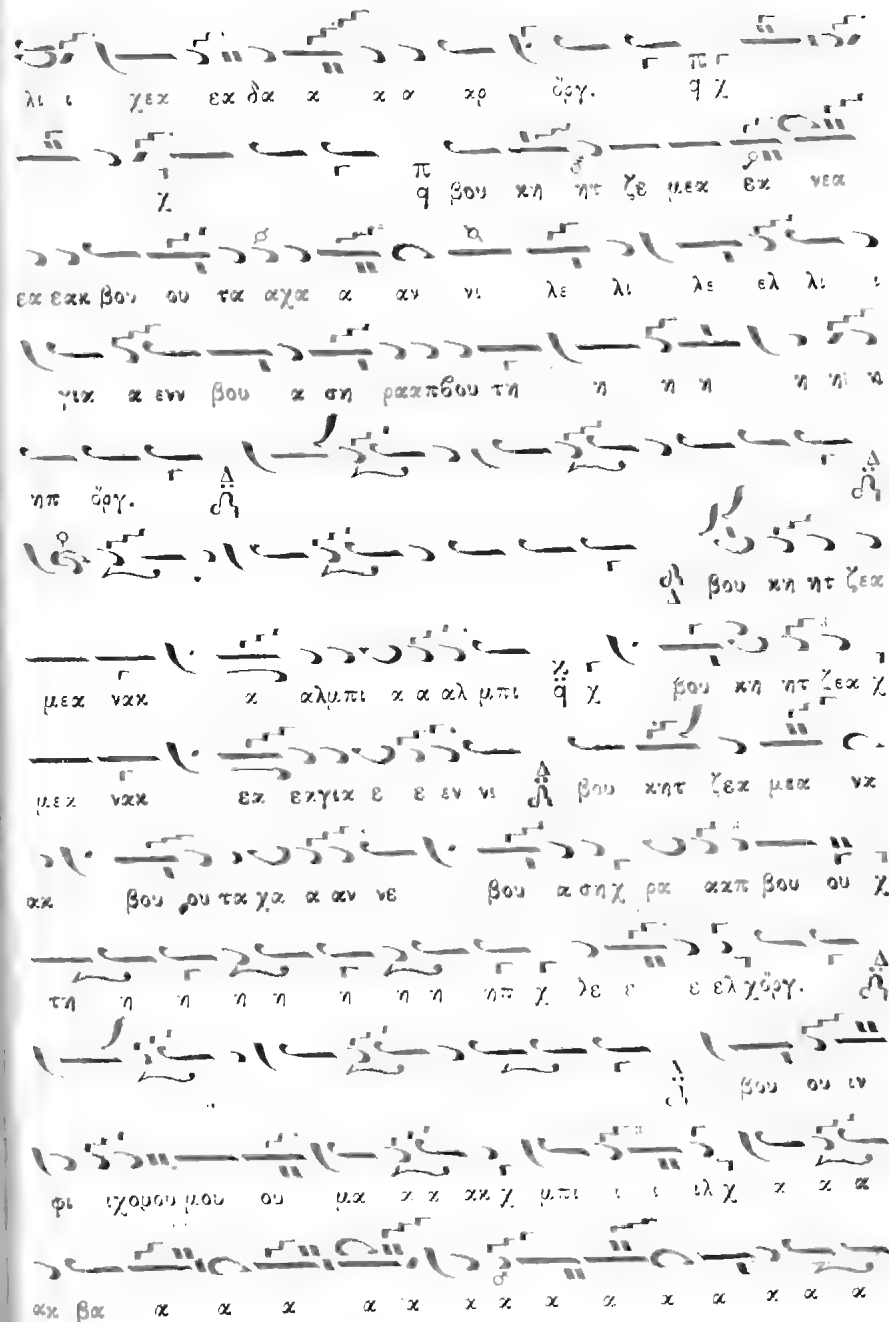 λι ι χεκ εκ δα α α α αρ ὄργ. π q χ
χ π q βου κη ητ ζε μεκ εκ νεα
εα εακ βου ου τα αχα α αν νι λε λι λε ελ λι ι
για α ενν βου α ση ρααπβου τη η η η η ηι η
ηπ ὄργ. Δ
Δ
Δ βου κη ητ ζεκ
μεκ νακ α αλμπι α α αλ μπι q χ βου κη ητ ζεκ χ
μεκ νακ εκ εκγια ε ε εν νι Δ βου κητ ζεκ μεκ να
ακ βου ου τα χα α αν νε βου α σηχ ρα ααπ βου ου χ
τη η η η η η η η ηπ χ λε ε ε ελ χὄργ. Δ
Δ βου ου ιν
φι ιχορουμου ου μα α α ακ χ μπι ι ι ιλ χ α α α
ακ βα α α α α α α α α α α α α α α